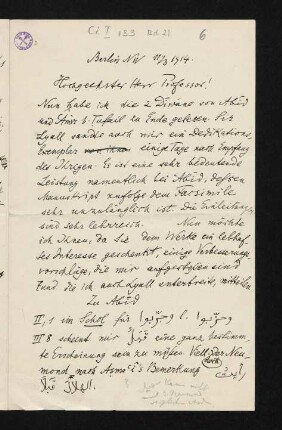 6
Berlin NW 11/3 1914.
Hochgeehrter Herr Professor!
Nun habe ich die 2 Dīwāne von Abīd
und Āmir b. Tufail zu Ende gelesen. Sir
Lyall sandte auch mir ein Dedikations
Exemplar einige Tage nach Empfang
des Ihrigen. Es ist eine sehr bedeutende
Leistung namentlich bei Abīd, dessen
Manuskript zufolge dem Facsimile
sehr unzulänglich ist. Die Einleitungen
sind sehr lehrreich. Nun möchte
ich Ihnen, da Sie dem Werke ein lebhaf-
tes Interesse geschenkt, einige Verbesserungs
vorschläge, die mir aufgestoßen sind
und die ich auch Lyall unterbreite, mitteilen
Zu Abīd
II, 1 im Schol für
III 8 scheint mir eine ganz bestimm-
te Erscheinung sein zu müssen Vielleicht der Neu-
mond, nach Bemerkung
الهلال قبلاً